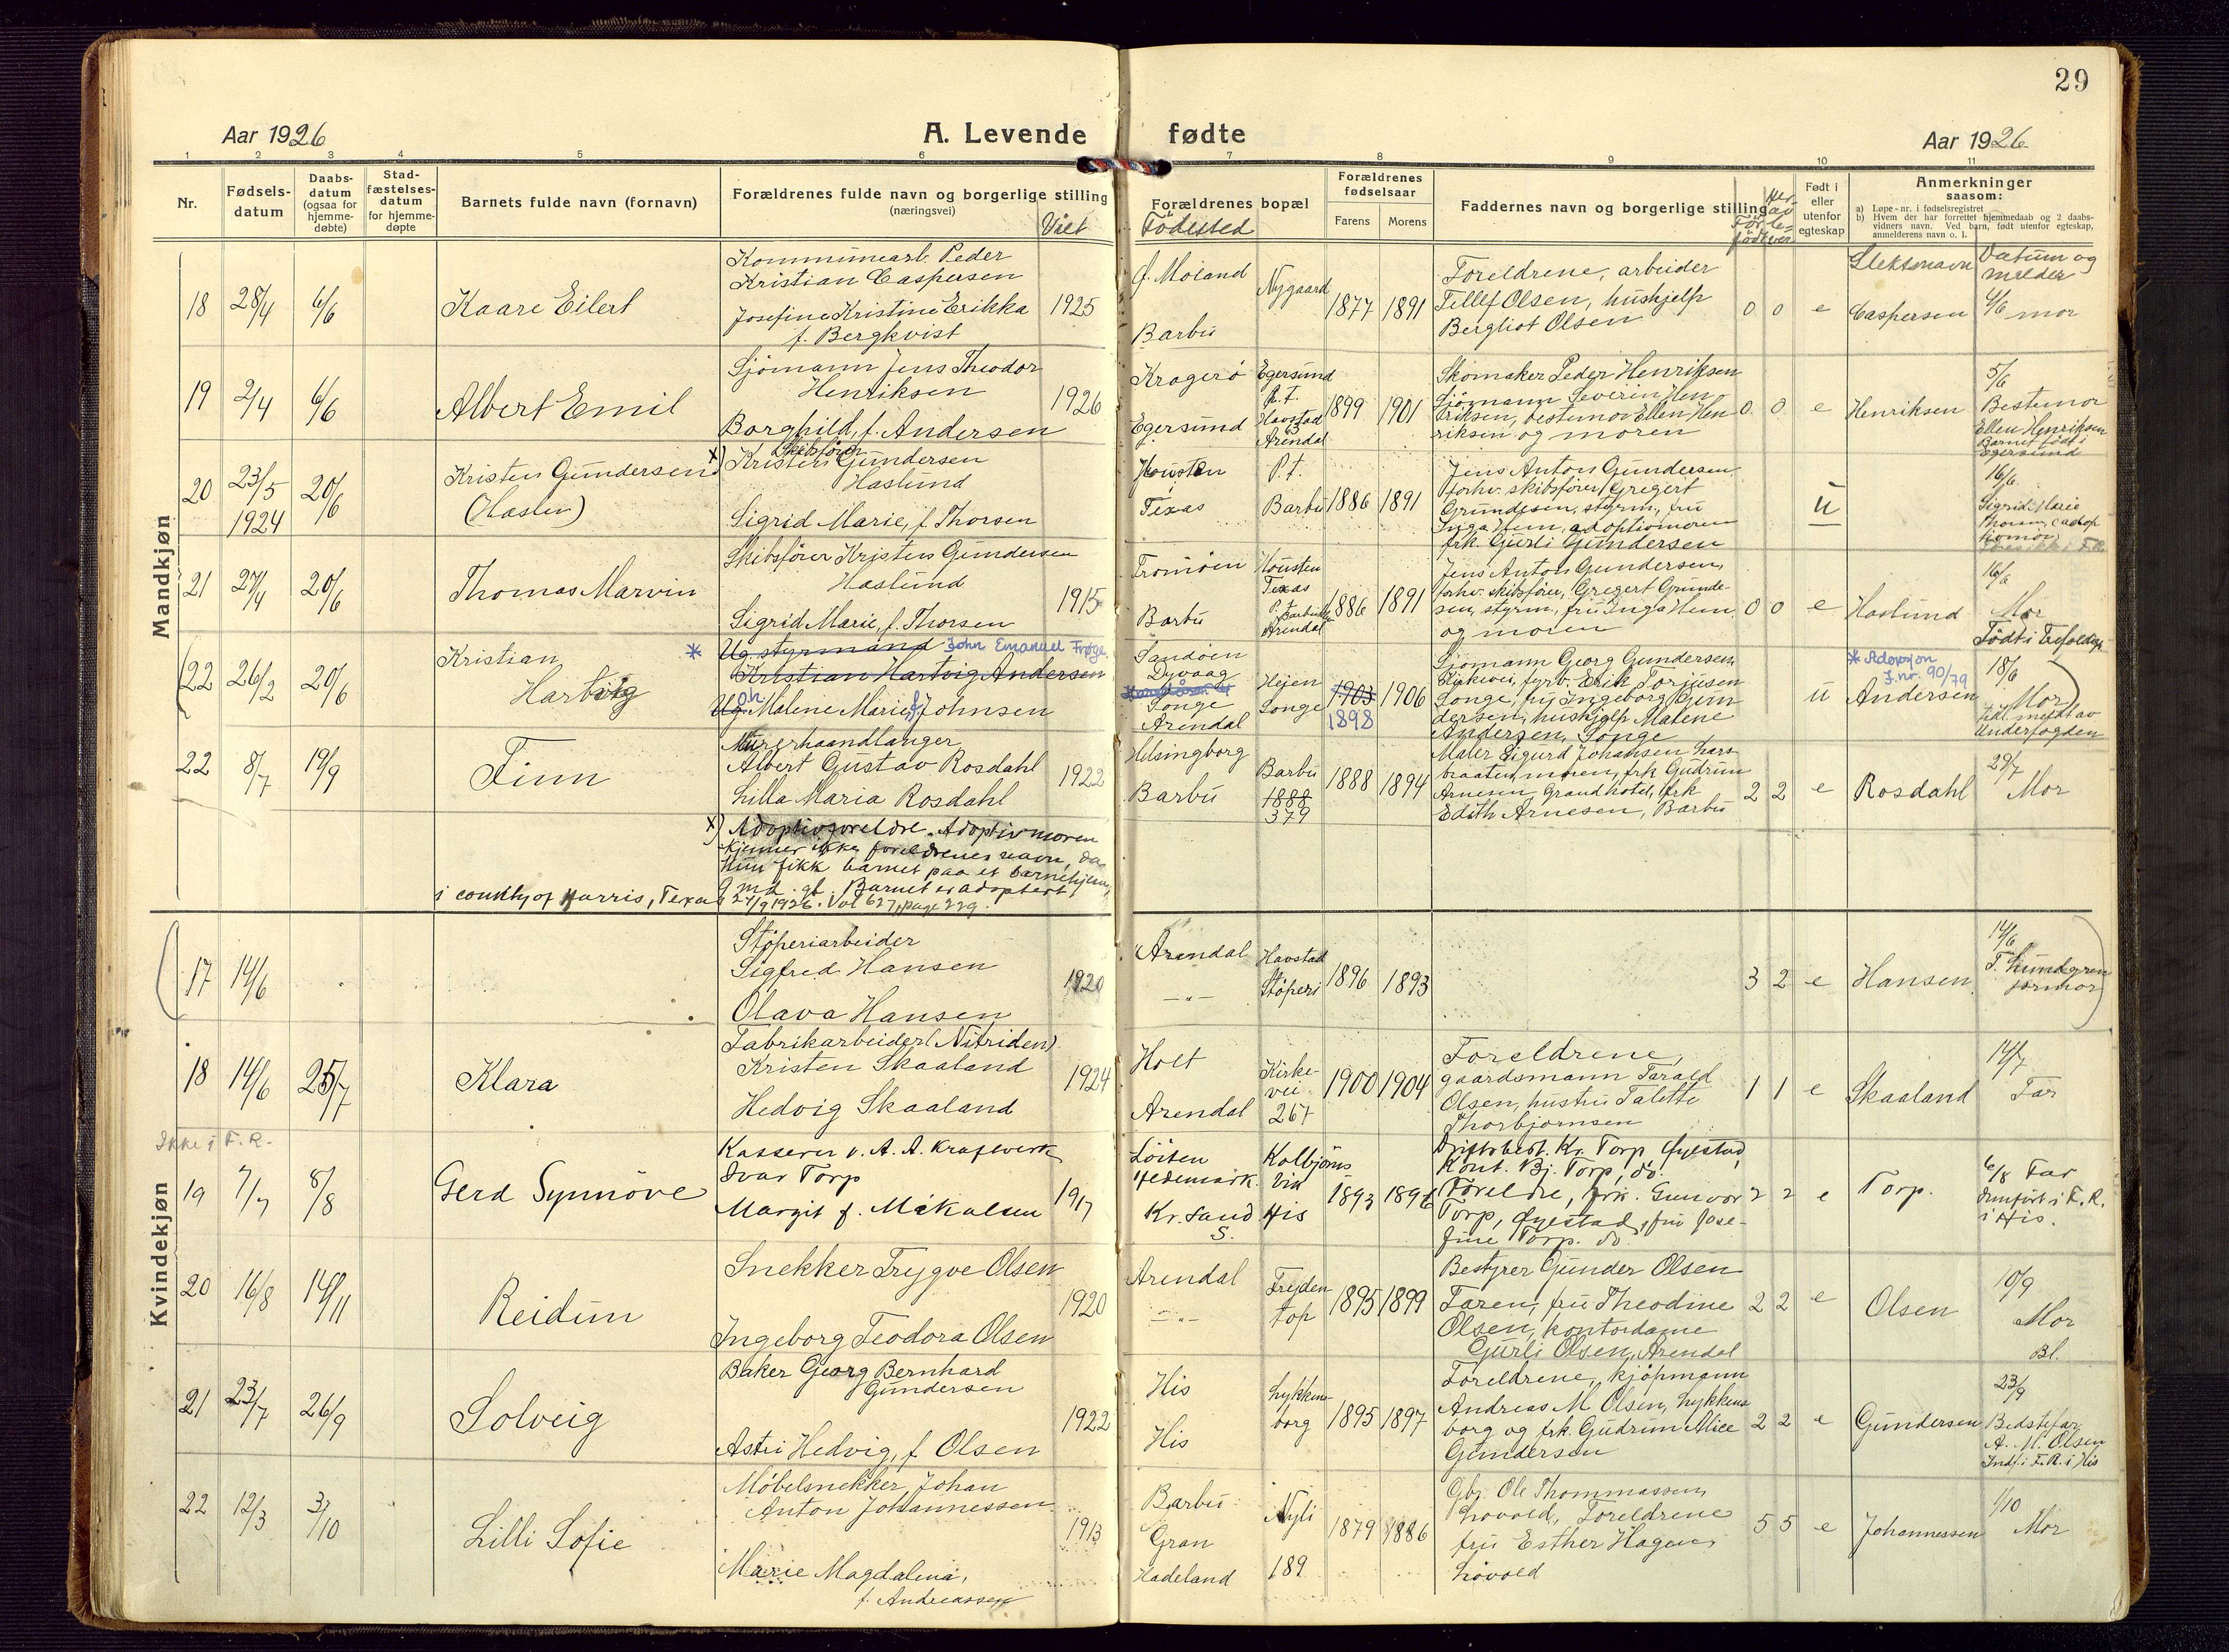 29
Aar 1926
A. Levende fødte
Aar 1926
1 2 3 4 5 6 7 8 9 10 11
Nr.
Fødsels-
datum
Daabs-
datum
(ogsaa for
hjemme-
døbte)
Stad-
fæstelses-
datum
for hjemme-
døpte
Barnets fulde navn (fornavn)
Forældrenes fulde navn og borgerlige stilling
(næringsvei)
Viet
Forældrenes bopæl
Födested
Forældrenes
fødselsaar
Farens
Morens
Faddernes navn og borgerlige stilling
Født i
eller
utenfor
egteskap
Anmerkninger
saasom:
a) Løpe-nr. i fødselsregistret
b) Hvem der har forrettet hjemmedaab og 2 daabs-
vidners navn. Ved barn, født utenfor egteskap,
anmelderens navn o. l.
Slektsnavn
Datum og
melder
Mandkjøn
18 28/4 6/6
Kaare Eilert
Kommunearb. Peder
Kristian Caspersen
Josefine Kristine Erikka
f. Bergkvist
1925
Ø. Moland
Barbu
Nygaard
1877 1891
Foreldrene, arbeider
Tellef Olsen, hushjelp
Bergliot Olsen
0 0 e
Caspersen
4/6 mor
19 2/4 6/6
Albert Emil
Sjömann Jens Theodor
Henriksen
Borghild, f. Andersen
1926
Kragerö
Egersund
Egersund
P.t.
Havstad
Arendal
1899 1901
Skomaker Peder Henriksen
Sjömann Severin Hen-
riksen, bestemor Ellen Hen
riksen og moren
0 0 e
Henriksen
5/6
Bestemor
Ellen Henriksen
Barnet födt i
Egersund
20 23/5 1924 20/6
Kristen Gundersen
(Haslun)
x) Skibsförer
Kristen Gundersen
Haslund
Sigrid Marie, f. Thorsen
Housten
Texas
P.t.
Barbu
1886 1891
Jens Anton Gundersen
forhv. skibsfører, Gregert
Gundesen, styrm., fru
Inga Hem, adoptivmoren
frk. Gurli Gundersen
u
16/6
Sigrid Marie
21 27/4 20/6
Thomas Marvin
Skibsförer Kristen Gundersen
Haslund
Sigrid Marie, f. Thorsen
1915
Tromöen
Barbu
Housten
Texas
P.t.
Arendal
1886 1891
Jens Anton Gundersen,
forhv. skibsfører, Gregert Gunde-
sen, styrm., fru Inga Hem
og moren
0 0 e
Haslund
16/6
Mor
22 26/2 20/6
Kristian
Hartvig
* Ug styrmand John Emanuel Frøge
Kristian Hartvig Andersen
Ug. Malene Marie, f. Johnsen
Sandöen
Dyvaag
Songe
Arendal
Hejen
Songe
1903 1906
1898
Sjömann Georg Gundersen,
Songe, fru Ingeborg Gun
dersen, hushjelp Malene
Andersen, Songe
u
Andersen
* Adopsjon
J.nr. 90/79
18/6
Mor
Underfogden
22 8/7 19/9
Finn
Murerhaandlanger
Albert Gustav Rosdahl
Lilla Maria Rosdahl
1922
Helsingborg
Barbu
Barbu
1888
379
1888 1894
Maler Sigurd Johansen Lars
braaten, moren, frk Gudrun
Arnesen, Grand hotel, frk
Edith Arnesen, Barbu
2 2 e
Rosdahl
29/7
Mor
x) Adoptivforeldre. Adoptivmoren
kjenner ikke foreldrenes navn, da
hun fikk barnet paa et barnehjem,
9 md. gl. Barnet er adoptert
i county of Harris, Texas 24/9 1926. Vol 627, page 229.
Kvindekjøn
17 14/6
Støperiarbeider
Sigfred Hansen
Olava Hansen
1920
Arendal
-"-
Havstad
Støperi
1896 1893
3 2 e
Hansen
14/6
F. Lundgren
jormor
18 14/6 25/7
Klara
Fabrikarbeider (Nitriden)
Kristen Skaaland
Hedvig Skaaland
1924
Holt
Arendal
Kirke-
vei
267
1900 1904
Foreldrene,
gaardsmann Tarald
Olsen, hustru Talette
Thorbjørnsen
1 1 e
Skaaland
14/7
Far
Ikke i F. R.
19 7/7 8/8
Gerd Synnöve
Kasserer v. A. A. Kraftverk
Ivar Torp
Margit f. Mikalsen
1917
Löiten
Hedemark.
Kr.sand
S.
Kolbjörns
vik
His
1893 1896
Driftsbest. Kr. Torp Öyestad,
Kont. Bj. Torp, do.
Foreldre, frk. Gunvor
Torp, Öyestad, fru Jose-
fine Torp. do.
2 2 e
Torp.
6/8 Far
Innfört i F. R.
i His.
20 16/8 14/11
Reidun
Snekker Trygve Olsen
Ingeborg Teodora Olsen
1920
Arendal
-"-
Frejden
top
1895 1899
Bestyrer Gunder Olsen
Faren, fru Theodine
Olsen, kontordame
Gurli Olsen, Arendal
2 2 e
Olsen
10/9
Mor
Bl.
21 23/7 26/9
Solveig
Baker Georg Bernhard
Gundersen
Astri Hedvig, f Olsen
1922
His
His
Lykkens
borg
1895 1897
Foreldrene, kjøpmann
Andreas M Olsen, Lykkens
borg og frk. Gudrun Alice
Gundersen
2 2 e
Gundersen
23/9
Bedstefar
A. M. Olsen
Indf. i F.R. i His
22 12/3 3/10
Lilli Sofie
Møbelsnekker Johan
Anton Johannessen
Marie Magdalena,
f. Andreassen
1913
Barbu
Gran
Hadeland
Nyli
189
1879 1886
Gbr. Ole Thommassen,
Lovold, Foreldrene
fru Esther Hagane,
Lövold
5 5 e
Johannessen
1/10
Mor